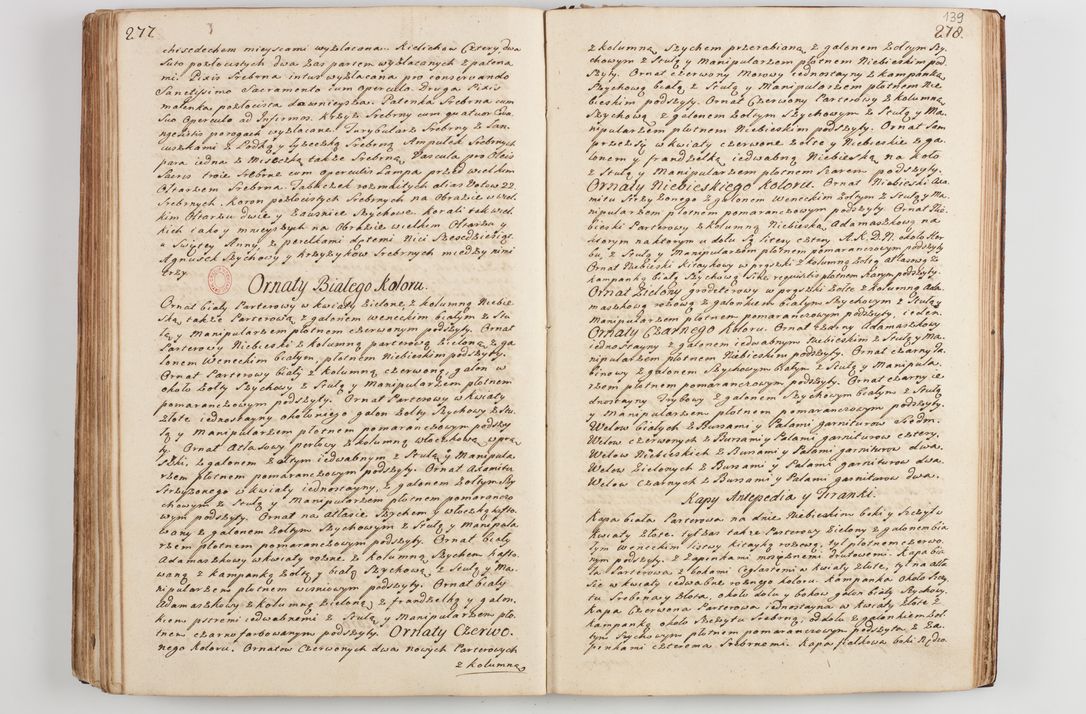 277
chrzedechem mieyscami wyzłacana. Kielichow Cztery, dwa
suto pozłocistych dwa zas partem wyzłacanych z patena
mi. Pixis Srebrna intus wyzłacana pro conservando
Sanctissimo Sacramento cum operculo. Druga Pixis
malenka, pozłocista dawnieysza. Patenka Srebrna cum
suo operculo ad Infirmos. Krzyz Srebrny cum quatuor Ewa
ngelistis porogach wyzłacane. Turybularz Srebrny z Łan
cuszkami z Łodką y Łyzeczką Srebrną. Ampułek Srebrnych
para iedna z Miseczką także Srebrną. Vascula pro Oleis
Sacris troie Srebrne cum operculis Lampa przed wielkim
Ołtarzem Srebrna. Tabliczek rozmaitych alias Votow 22.
Srebrnych. Koron pozłocistych Srebrnych na Obrazie w wiel
kim Ołtarzu dwie y zausnice Szychowe. Korali tak wiel
kich iako y mnieyszych na Obrazie wielkim Ołtarzu y
u Swiętey Anny, z perełkami dętemi Nici Szescdziesiąt.
Agnusek Szychowy y krzyzykow Srebrnych miedzy nimi
trzy.
Ornaty Białego Koloru.
Ornat biały Parterowy w kwiaty Zielone, z kolumną Niebie
ską także Parterową z galonem weneckim białym z Stu
łą y Manipularzem płotnem czerwonym podszyty. Ornat
Parterowy Niebieski z kolumną parterową Zieloną z ga
lonem Weneckim białym, płotnem Niebieskim podszyty.
Ornat Parterowy biały z kolumną czerwoną, galon w
około Zołty Szychowy z Stułą y Manipularzem płotnem
pomaranczowym podszyty. Ornat Parterowy w kwiaty
złote iednostayny około niego galon Zołty Szychowy z Stu
łą y Manipularzem płotnem pomaranczowym podszy
ty. Ornat Atłasowy perłowy z kolumną włoczkową w pra
szki, z galonem Zołtym iedwabnym z Stułą y Manipula
rzem płotnem pomaranczowym podszyty. Ornat Axamitu
Strzyzonego w kwiaty iednostayny, z galonem Zołtym Szy
chowym z Stułą y Manipularzem płotnem pomaranczo
wym podszyty. Ornat na Atłasie Szychem y włoczką hafto
wany z galonem Zołtym Szychowym z Stułą y Manipula
rzem płotnem pomaranczowym podszyty. Ornat biały
Adamaszkowy w kwiaty rozne, z kolumną Szychem hafto
waną z kampanką Zołtą y białą Szychową, z Stułą y Ma
nipularzem płotnem wisniowym podszyty. Ornat biały
Adamaszkowy z kolumną Zieloną, z frandzelką y galon
kiem pstremi iedwabnemi z Stułą y Manipularzem pło
tnem czarno farbowanym podszyty. Ornaty Czerwo.
nego Koloru. Ornatow Czerwonych dwa nowych Parterowych
z kolumną
139
278.
z kolumną Szychem przerabianą z galonem Zołtym Szy.
chowym z Stułą y Manipularzem płotnem Niebieskim pod
szyty. Ornat czerwony Morowy iednostayny z kampanką
Szychową białą z Stułą y Manipularzem płotnem Nie
bieskim podszyty. Ornat Czerwony Parterowy z kolumną
Szychową, z galonem Zołtym Szychowym z Stułą y Ma
nipularzem płotnem Niebieskim podszyty. Ornat Sam
przez się w kwiaty czerwone Zołte y Niebieskie z ga
lonem y frandzelką iedwabną Niebieską na koło
z Stułą y Manipularzem płotnem Szarem podszyty.
Ornaty Niebieskiego Koloru. Ornat Niebieski Axa
mitu Strzyzonego z galonem Weneckim Zołtym z Stułą y Ma
nipularzem płotnem pomaranczowym podszyty. Ornat Nie
bieski Parterowy z kolumną Niebieską Adamaszkową na
ktorym na ktorym u dołu są litery cztery A. K. D. N. około Her
bu, z Stułą y Manipularzem płotnem pomaranczowym podszyty
Ornat Niebieski kitaykowy w prązki z kolumną Zołtą atłasową z
kampanką białą Szychową sine requisitis płotnem Szarym podszyty.
Ornat Zielony grodeterowy w prązki Zołte z kolumną Ada
maszkową rozową z galonkiem białym Szychowym z Stułą y
Manipularzem płotnem pomaranczowym podszyty. ieden.
Ornaty Czarnego Koloru. Ornat Czarny Adamaszkowy
iednostayny z galonem iedwabnym Niebieskim z Stułą y Ma
nipularzem płotnem Niebieskim podszyty. Ornat czarny ła
binowy z galonem Szychowym białym z Stułą y Manipula.
rzem płotnem pomaranczowym podszyty. Ornat czarny ie
dnostayny Trybowy z galonem Szychowym białym z Stułą
y Manipularzem płotnem pomaranczowym podszyty.
Welow białych z Bursami y Palami garniturow siedm.
Welow czerwonych z Bursami y Palami garniturow cztery.
Welow Niebieskich z Bursami y Palami garniturow dwa.
Welow Zielonych z Bursami y Palami garniturow dwa.
Welow Czarnych z Bursami y Palami garniturow dwa.
Kapy Antepedia y Firanki.
Kapa biała Parterowa na dnie Niebieskim boki y Szczyty
kwiaty Złote. tył zas także Parterowy Zielony z galonem bia
łym Weneckim listwy kitayką rozową, tył płotnem czerwo.
nym podszyty. z zapinkami mosięznemi drutowemi. Kapa bia
ła Parterowa z bokami Ceglastemi w kwiaty Złote, tył na atła
sie w kwiaty iedwabne roznego koloru. Kampanka około Szczy
tu Srebrna y Złota, około dołu y bokow galon biały Szychowy.
Kapa Czerwona Parterowa iednostayna w kwiaty Złote z
kampanką około Szczytu Srebrną, od dołu z galonkiem Zoł
tym Szychowym płotnem pomaranczowym podszyta z Za
pinkami czterema Srebrnemi. Kapa fiałkowa boki Rądza